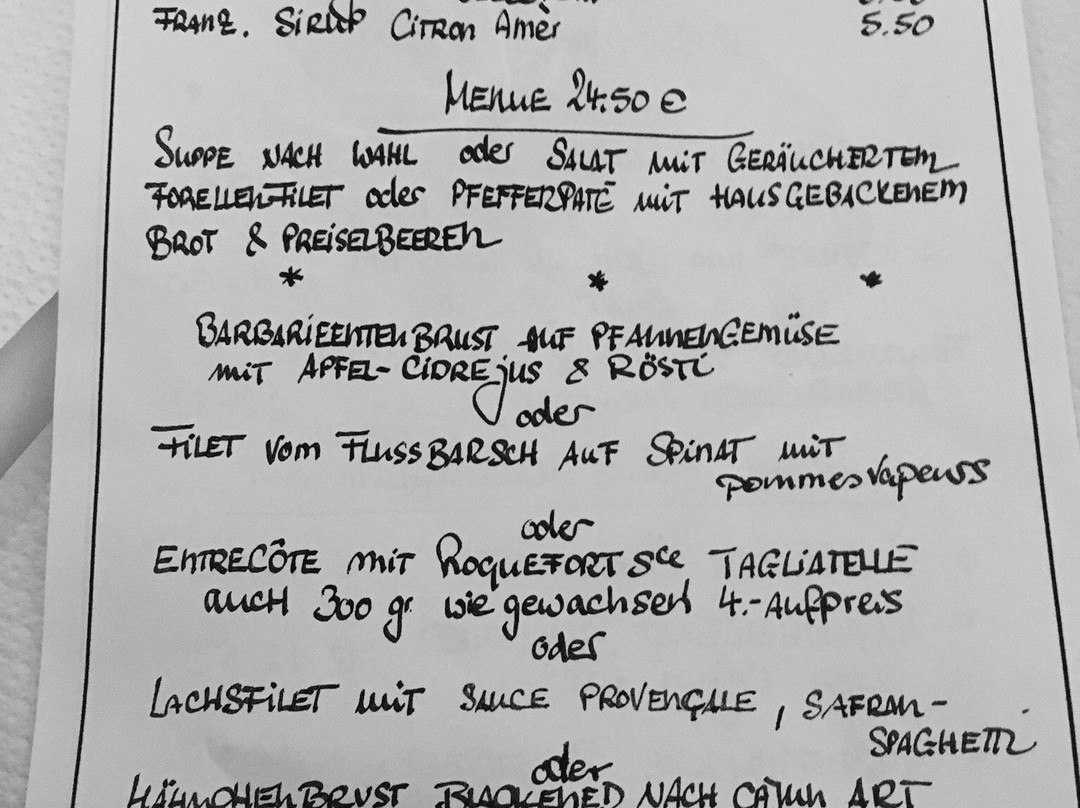 FRANZ. SIRUP CITRON AMÈR 5.50
MENUE 24.50 €
SUPPE NACH WAHL oder SALAT MIT GERÄUCHERTEM
FORELLENFILET oder PFEFFERPATÉ MIT HAUSGEBACKENEM
BROT & PREISELBEEREN
* * *
BARBARIEENTENBRUST AUF PFANNENGEMÜSE
MIT APFEL-CIDREjus & RÖSTI
oder
FILET VOM FLUSSBARSCH AUF SPINAT MIT
pommesvapeurs
oder
ENTRECÔTE MIT ROQUEFORT Sce TAGLIATELLE
AUCH 300 gr. wie gewachsen 4.-Aufpreis
oder
LACHSFILET MIT SAUCE PROVENÇALE, SAFRAN-
SPAGHETTI
oder
HÄHNCHENBRUST BLACKENED NACH CAJUN ART